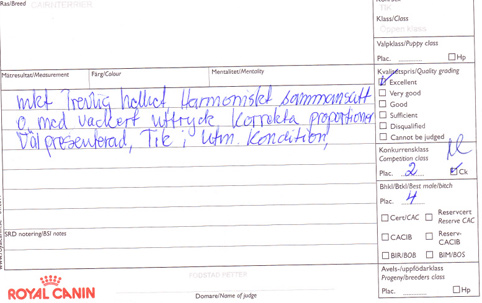 Ras/Breed
CAIRNTERRIER
Klass/Class
Öppen klass
Valpklass/Puppy class
Plac. Hp
Mätresultat/Measurement Färg/Colour Mentalitet/Mentality
Kvalitetspris/Quality grading
Excellent
Very good
Good
Sufficient
Disqualified
Cannot be judged
mkt Trevlig helhet, Harmoniskt sammansatt
o, med vackert uttryck, Korrekta proportioner
Välpresenterad, Tik, i, Utm. Kondition,
Konkurrensklass
Competition class
Plac. 2 Ck
Bhkl/Btkl/Best male/bitch
Plac. 4
Cert/CAC Reservcert
Reserve CAC
CACIB Reserv-
CACIB
BIR/BOB BIM/BOS
SRD notering/BSI notes
Avels-/uppfödarklass
Progeny/breeders class
Plac. Hp
ROYAL CANIN
Domare/Name of judge